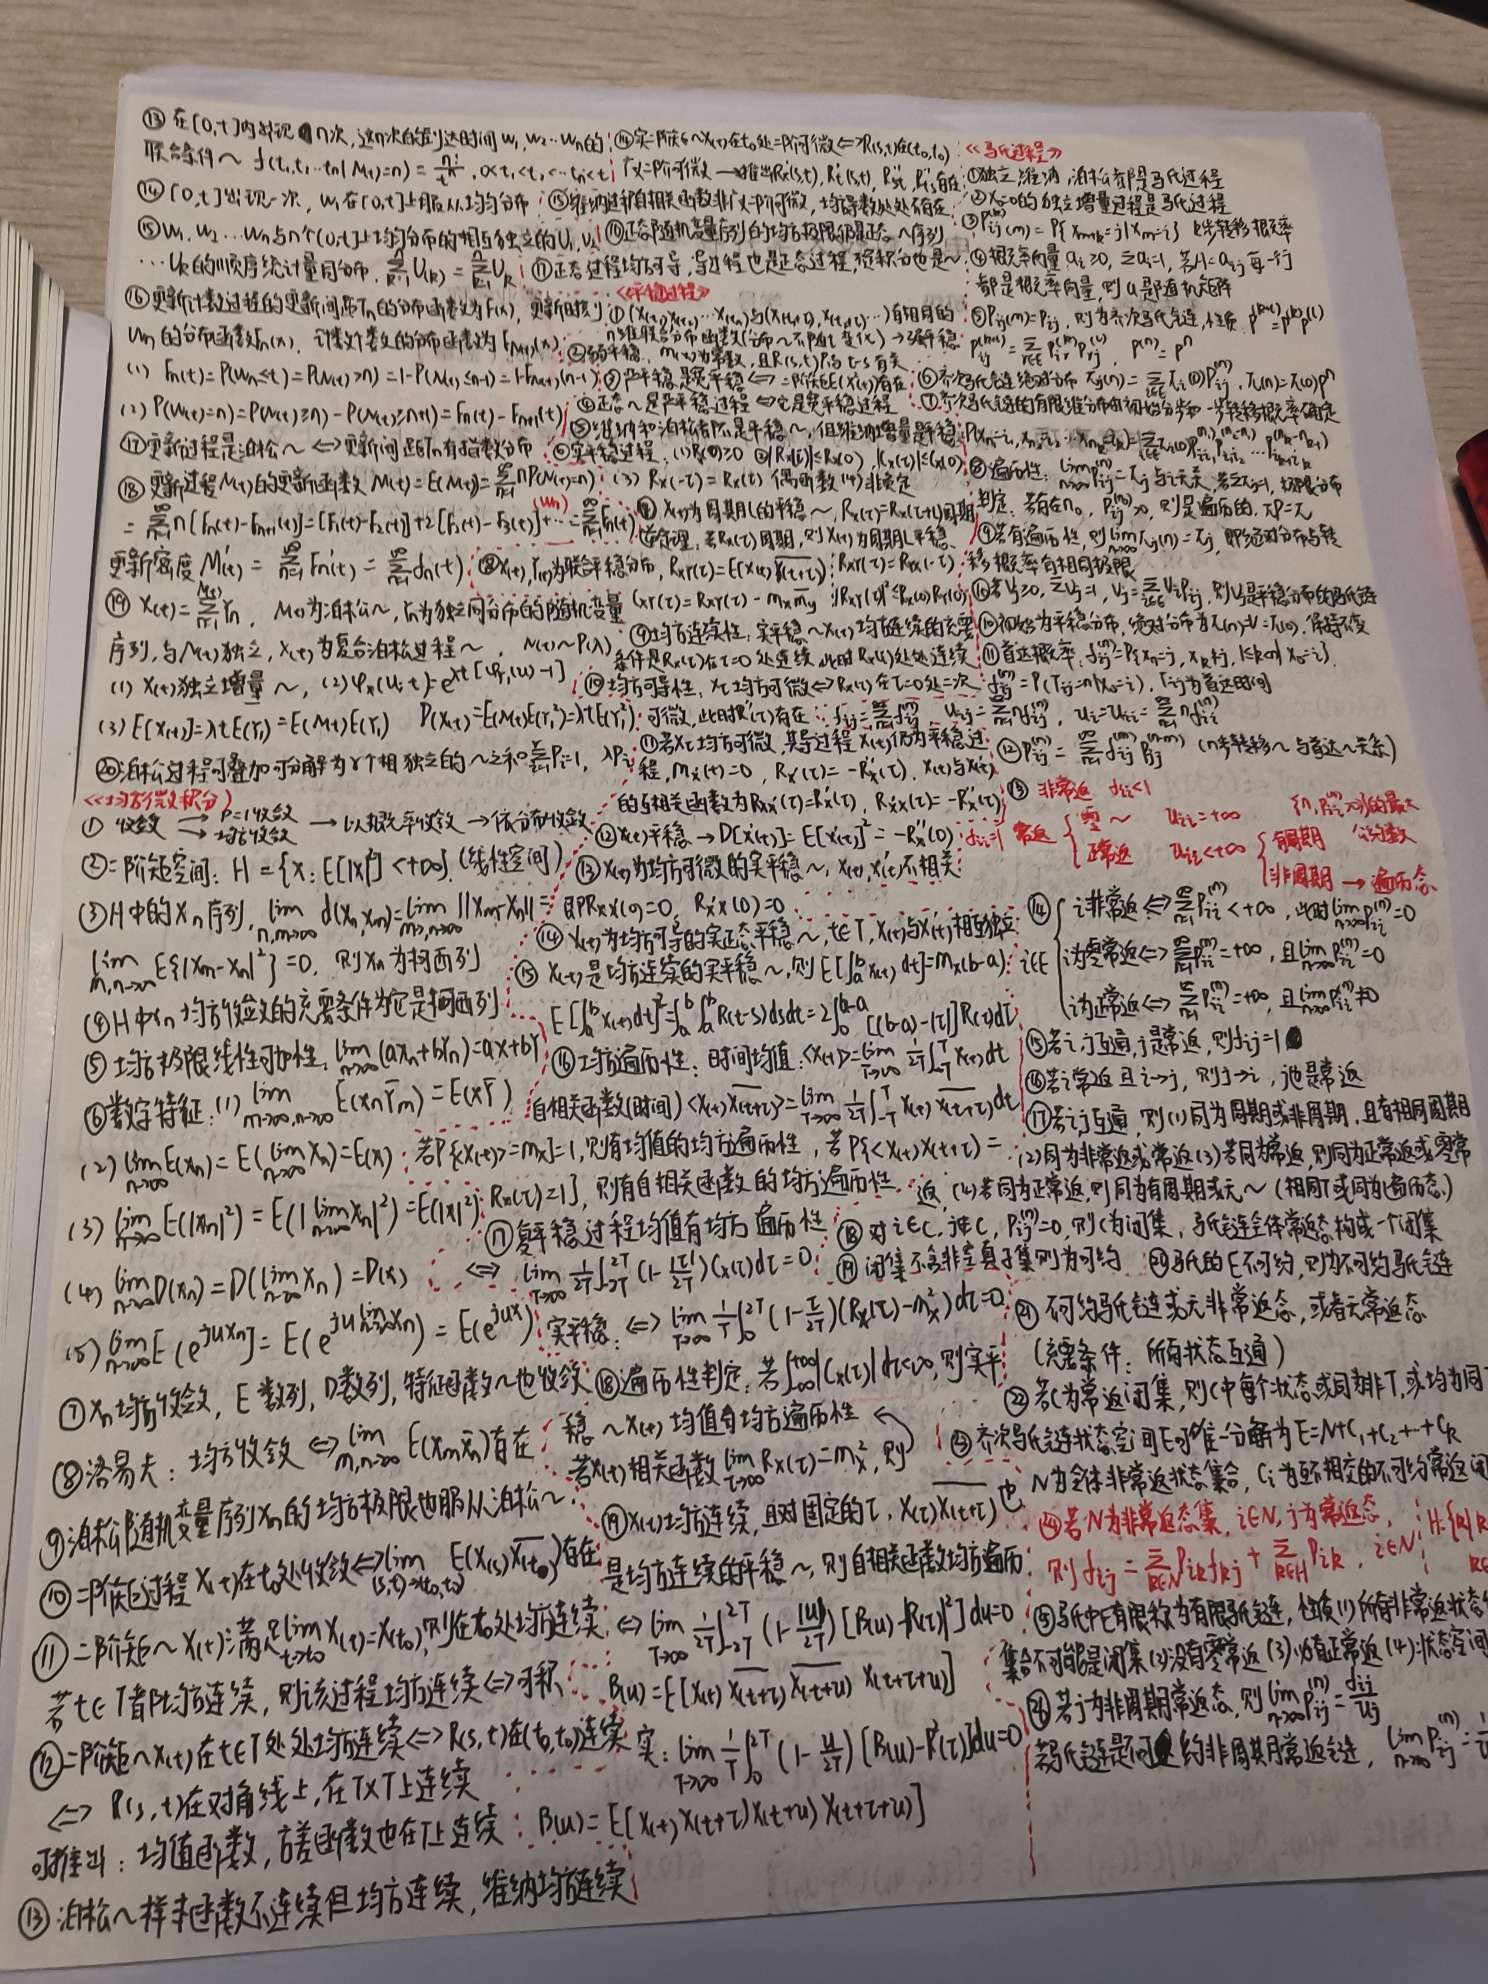 ⑬ 在[0,t]内出现n次, 这n次的到达时间W₁,W₂…Wₙ的
联合条件~ f(t₁,t₂…tₙ|N(t)=n) = n!/tⁿ, 0<t₁<t₂<…tₙ<t
⑭ [0,t]出现一次, W₁在[0,t]上服从均匀分布
⑮ W₁,W₂…Wₙ与n个[0,t]上均匀分布的相互独立的U₁,U₂
…Uₖ的顺序统计量同分布, ΣU₍ₖ₎ = ΣUₖ
⑯ 更新计数过程的更新间距Tₙ的分布函数为F(x), 更新时刻
Wₙ的分布函数Fₙ(x), 计数个数的分布函数为F_N(t)(x)
(1) Fₙ(t)=P(Wₙ≤t)=P(N(t)≥n)=1-P(N(t)≤n-1)=1-F_N(t)(n-1)
(2) P(N(t)=n)=P(N(t)≥n)-P(N(t)≥n+1)=Fₙ(t)-Fₙ₊₁(t)
⑰ 更新过程是泊松~ ⟺ 更新间距Tₙ有指数分布
⑱ 更新过程N(t)的更新函数 M(t)=E(N(t))=Σ nP(N(t)=n)
=Σ n[Fₙ(t)-Fₙ₊₁(t)]=[F₁(t)-F₂(t)]+2[F₂(t)-F₃(t)]+…=ΣFₙ(t)
(Wₙ)
更新密度 M'(t) = ΣFₙ'(t) = Σfₙ(t)
⑲ X(t)=ΣYₙ, N(t)为泊松~, Yₙ为独立同分布的随机变量
序列, 与N(t)独立, X(t)为复合泊松过程~, N(t)~P(λ)
(1) X(t)独立增量~, (2) φₓ(u;t)=e^λt[φ_Y₁(u)-1]
(3) E[X(t)]=λtE(Y₁)=E(N(t))E(Y₁) D(X(t))=E(N(t))E(Y₁²)=λtE(Y₁²)
⑳ 泊松过程可叠加可分解为r个相独立的~之和 ΣPᵢ=1, λPᵢ
<<均方微积分>>
① 收敛 → P=1收敛
→ 均方收敛 → 以概率收敛 → 依分布收敛
② 二阶矩空间: H={X: E[|X|²]<+∞}. (线性空间)
③ H中的Xₙ序列, lim(n,m→∞) d(Xₙ,Xₘ)=lim(m,n→∞) ||Xₘ-Xₙ||=
lim(m,n→∞) E{|Xₘ-Xₙ|²}=0, 则Xₙ为柯西列
④ H中Xₙ均方收敛的充要条件为它是柯西列
⑤ 均方极限线性可加性: lim(n→∞)(aXₙ+bYₙ)=aX+bY
⑥ 数字特征: (1) lim(m→∞,n→∞) E(XₙȲₘ)=E(XȲ)
(2) lim(n→∞)E(Xₙ)=E(lim(n→∞)Xₙ)=E(X)
(3) lim(n→∞)E(|Xₙ|²)=E(|lim(n→∞)Xₙ|²)=E(|X|²)
(4) lim(n→∞)D(Xₙ)=D(lim(n→∞)Xₙ)=D(X)
(5) lim(n→∞)E(e^juXₙ]=E(e^ju lim Xₙ)=E(e^juX)
⑦ Xₙ均方收敛, E数列, D数列, 特征函数~也收敛
⑧ 洛易夫: 均方收敛 ⟺ lim(m,n→∞) E(XₘX̄ₙ)存在
⑨ 泊松随机变量序列Xₙ的均方极限也服从泊松~
⑩ 二阶矩过程X(t)在t₀处收敛⟺lim((s,t)→(t₀,t₀)) E(X(s)X̄(t₀))存在
⑪ 二阶矩~X(t)满足lim(t→t₀)X(t)=X(t₀), 则在t₀处均方连续
若t∈T都均方连续, 则该过程均方连续⟺可积
⑫ 二阶矩~X(t)在t∈T处处均方连续⟺R(s,t)在(t₀,t₀)连续
⟺ R(s,t)在对角线上, 在T×T上连续
可推出: 均值函数, 方差函数也在T上连续
⑬ 泊松~样本函数不连续但均方连续, 维纳均方连续
⑭ 实二阶矩~X(t)在t₀处二阶可微⟺R(s,t)在(t₀,t₀)
广义二阶可微→推出R'ₛ(s,t), R'ₜ(s,t), R''ₛₜ, R''ₜₛ存在
⑮ 维纳过程自相关函数非广义二阶可微, 均方导数处处不存在
⑯ 正态随机变量序列的均方极限仍是正态~序列
⑰ 正态过程均方可导, 导过程也是正态过程, 须积分也是~
<<平稳过程>>
① (X(t₁),X(t₂)…X(tₙ))与(X(t₁+τ),X(t₂+τ)…)有相同的
n维联合分布函数(分布~不随t变化)→强平稳
② 弱平稳, m(x)为常数, 且R(s,t)只与t-s有关
③ 严平稳是宽平稳 ⟺ 二阶矩E(X²(t))存在
④ 正态~是严平稳过程 ⟺ 它是宽平稳过程
⑤ 维纳和泊松都不是平稳~, 但维纳增量是平稳
⑥ 实平稳过程: (1) Rₓ(0)≥0 (2) |Rₓ(τ)|≤Rₓ(0), |Cₓ(τ)|≤Cₓ(0)
(3) Rₓ(-τ)=Rₓ(τ) 偶函数 (4) 非负定
X(t)为周期L的平稳~, Rₓ(τ)=Rₓ(τ+L)周期
逆定理: 若Rₓ(τ)周期, 则X(t)为周期L平稳
⑧ X(t), Y(t)为联合平稳分布, R_XY(τ)=E(X(t)Ȳ(t+τ)) R_XY(τ)=R_YX(-τ)
C_XY(τ)=R_XY(τ)-mₓm̄_Y |R_XY(τ)|²≤Rₓ(0)R_Y(0)
⑨ 均方连续性: 实平稳~X(t)均方连续的充要
条件是Rₓ(τ)在τ=0处连续, 此时Rₓ(τ)处处连续
⑩ 均方可导性: X(t)均方可微⟺Rₓ(τ)在τ=0处二次
可微, 此时R''(τ)存在
⑪ 若X(t)均方可微, 其导过程X'(t)仍为平稳过
程, mₓ'(t)=0, Rₓ'(τ)=-R''ₓ(τ), X(t)与X'(t)
的互相关函数为Rₓₓ'(τ)=R'ₓ(τ), Rₓ'ₓ(τ)=-R'ₓ(τ)
⑫ X(t)平稳→D[X'(t)]=E[X'(t)]²=-R''ₓ(0)
⑬ X(t)为均方可微的实平稳~, X(t), X'(t)不相关
即Rₓₓ'(0)=0, Rₓ'ₓ(0)=0
⑭ X(t)为均方可导的实正态平稳~, t∈T, X(t)与X'(t)相互独立
⑮ X(t)是均方连续的实平稳~, 则E[∫ₐᵇX(t)dt]=mₓ(b-a)
E[∫ₐᵇX(t)dt]²=∫ₐᵇ∫ₐᵇR(t-s)dsdt=2∫₀^(b-a)[(b-a)-|τ|]R(τ)dτ
⑯ 均方遍历性: 时间均值: <X(t)>=lim(T→∞) 1/2T∫₋T^T X(t)dt
自相关函数(时间)<X(t)X̄(t+τ)>=lim(T→∞) 1/2T∫₋T^T X(t)X̄(t+τ)dt
若P{<X(t)>=mₓ}=1, 则有均值的均方遍历性, 若P{<X(t)X(t+τ)=
Rₓ(τ)=1}, 则有自相关函数的均方遍历性
⑰ 复平稳过程均值有均方遍历性
⟺ lim(T→∞) 1/2T∫₋2T^2T(1-|τ|/2T)Cₓ(τ)dτ=0
实平稳: ⟺ lim(T→∞) 1/T∫₀^2T(1-τ/2T)(Rₓ(τ)-m²ₓ)dτ=0
⑱ 遍历性判定: 若∫₋∞^+∞|Cₓ(τ)|dτ<∞, 则实平
稳~X(t)均值有均方遍历性
若X(t)相关函数lim(τ→∞)Rₓ(τ)=m²ₓ, 则
⑲ X(t)均方连续, 且对固定的τ, X(τ)X̄(t+τ)也
是均方连续的平稳~, 则自相关函数均方遍历
⟺ lim(T→∞) 1/2T∫₋2T^2T(1-|u|/2T)[B(u)-|R(τ)|²]du=0
B(u)=E[X(t)X̄(t+τ)X̄(t+u)X(t+τ+u)]
实: lim(T→∞) 1/T∫₀^2T(1-u/2T)[B(u)-R²(τ)]du=0
B(u)=E[X(t)X(t+τ)X(t+u)X(t+τ+u)]
<<马氏过程>>
① 独立, 维纳, 泊松都是马氏过程
② X₀=0的独立增量过程是马氏过程
③ Pᵢⱼ⁽ᵏ⁾(m)=P{Xₘ₊ₖ=j|Xₘ=i} k步转移概率
④ 概率向量 aᵢ≥0, Σaᵢ=1, 若A=aᵢⱼ每一行
都是概率向量, 则A是随机矩阵
⑤ Pᵢⱼ(m)=Pᵢⱼ, 则为齐次马氏链, 性质 P⁽ᵏ⁺ˡ⁾=P⁽ᵏ⁾P⁽ˡ⁾
Pᵢⱼ⁽ᵐ⁺ˡ⁾=ΣPᵢᵣ⁽ᵐ⁾Pᵣⱼ⁽ˡ⁾, P⁽ⁿ⁾=Pⁿ
⑥ 齐次马氏链绝对分布 πⱼ(n)=Σπᵢ(0)Pᵢⱼ⁽ⁿ⁾, π(n)=π(0)Pⁿ
⑦ 齐次马氏链的有限维分布由初始分布和一步转移概率确定
⑧ 遍历性: lim(n→∞)Pᵢⱼ⁽ⁿ⁾=πⱼ与i无关, 若Σπⱼ=1, 极限分布
判定: 若存在n₀, Pᵢⱼ⁽ⁿ⁰⁾>0, 则是遍历的, πP=π
⑨ 若有遍历性, 则lim(n→∞)πⱼ(n)=πⱼ, 即绝对分布与转
移概率有相同极限
⑩ 若Vⱼ≥0, ΣVⱼ=1, Vⱼ=ΣVᵢPᵢⱼ, 则Vⱼ是平稳分布的马氏链
⑩ 初始为平稳分布, 绝对分布为π(n)=V=π(0), 保持不变
⑪ 首达概率, fᵢⱼ⁽ⁿ⁾=P{Xₙ=j, Xₖ≠j, 1≤k<n|X₀=i}
fᵢⱼ⁽ⁿ⁾=P(Tᵢⱼ=n|X₀=i), Tᵢⱼ为首达时间
fᵢⱼ=Σfᵢⱼ⁽ⁿ⁾ uᵢⱼ=Σnfᵢⱼ⁽ⁿ⁾, uᵢ=uᵢᵢ=Σnfᵢᵢ⁽ⁿ⁾
⑫ Pᵢⱼ⁽ⁿ⁾=Σfᵢⱼ⁽ᵐ⁾Pⱼⱼ⁽ⁿ⁻ᵐ⁾ (n步转移~与首达~关系)
⑬ 非常返 fᵢᵢ<1
{n, Pᵢᵢ⁽ⁿ⁾>0}的最大
公约数
fᵢᵢ=1 常返 { 零~ uᵢᵢ=+∞
正常返 uᵢᵢ<+∞ { 有周期
非周期 → 遍历态
⑭ i∈E { i非常返⟺ΣPᵢᵢ⁽ⁿ⁾<+∞, 此时lim(n→∞)Pᵢᵢ⁽ⁿ⁾=0
i为零常返⟺ΣPᵢᵢ⁽ⁿ⁾=+∞, 且lim(n→∞)Pᵢᵢ⁽ⁿ⁾=0
i为正常返⟺ΣPᵢᵢ⁽ⁿ⁾=+∞, 且lim(n→∞)Pᵢᵢ⁽ⁿ⁾≠0
⑮ 若i,j互通, j是常返, 则fᵢⱼ=1
⑯ 若i常返且i→j, 则j→i, j也是常返
⑰ 若i,j互通, 则(1)同为周期或非周期, 且有相同周期
(2)同为非常返或常返(3)若同为常返, 则同为正常返或零常
返 (4)若同为正常返, 则同为有周期或无~ (相同T或同为遍历态)
⑱ 对i∈C, j∉C, Pᵢⱼ⁽ⁿ⁾=0, 则C为闭集, 马氏链全体常返态构成一个闭集
⑲ 闭集不含非空真子集则为可约 ⑳ 马氏的E不可约, 则为不可约马氏链
㉑ 不可约马氏链或无非常返态, 或者无常返态
(充要条件: 所有状态互通)
㉒ 若C为常返闭集, 则C中每个状态或同为非T, 或均为同T
㉓ 齐次马氏链状态空间E可唯一分解为E=N+C₁+C₂+…+Cₖ
N为全体非常返状态集合, Cᵢ为互不相交的不可约常返闭
㉔ 若N为非常返态集, i∈N, j为常返态,
则fᵢⱼ=ΣPᵢₖfₖⱼ+ΣPᵢₖ, i∈N
㉕ 马氏中E有限称为有限马氏链, 性质(1)所有非常返状态
集合不可能是闭集(2)没有零常返(3)必有正常返(4)状态空间
㉖ 若j为非周期常返态, 则lim(n→∞)Pᵢⱼ⁽ⁿ⁾=fᵢⱼ/uⱼ
若马氏链是不可约非周期常返链, lim(n→∞)Pᵢⱼ⁽ⁿ⁾=